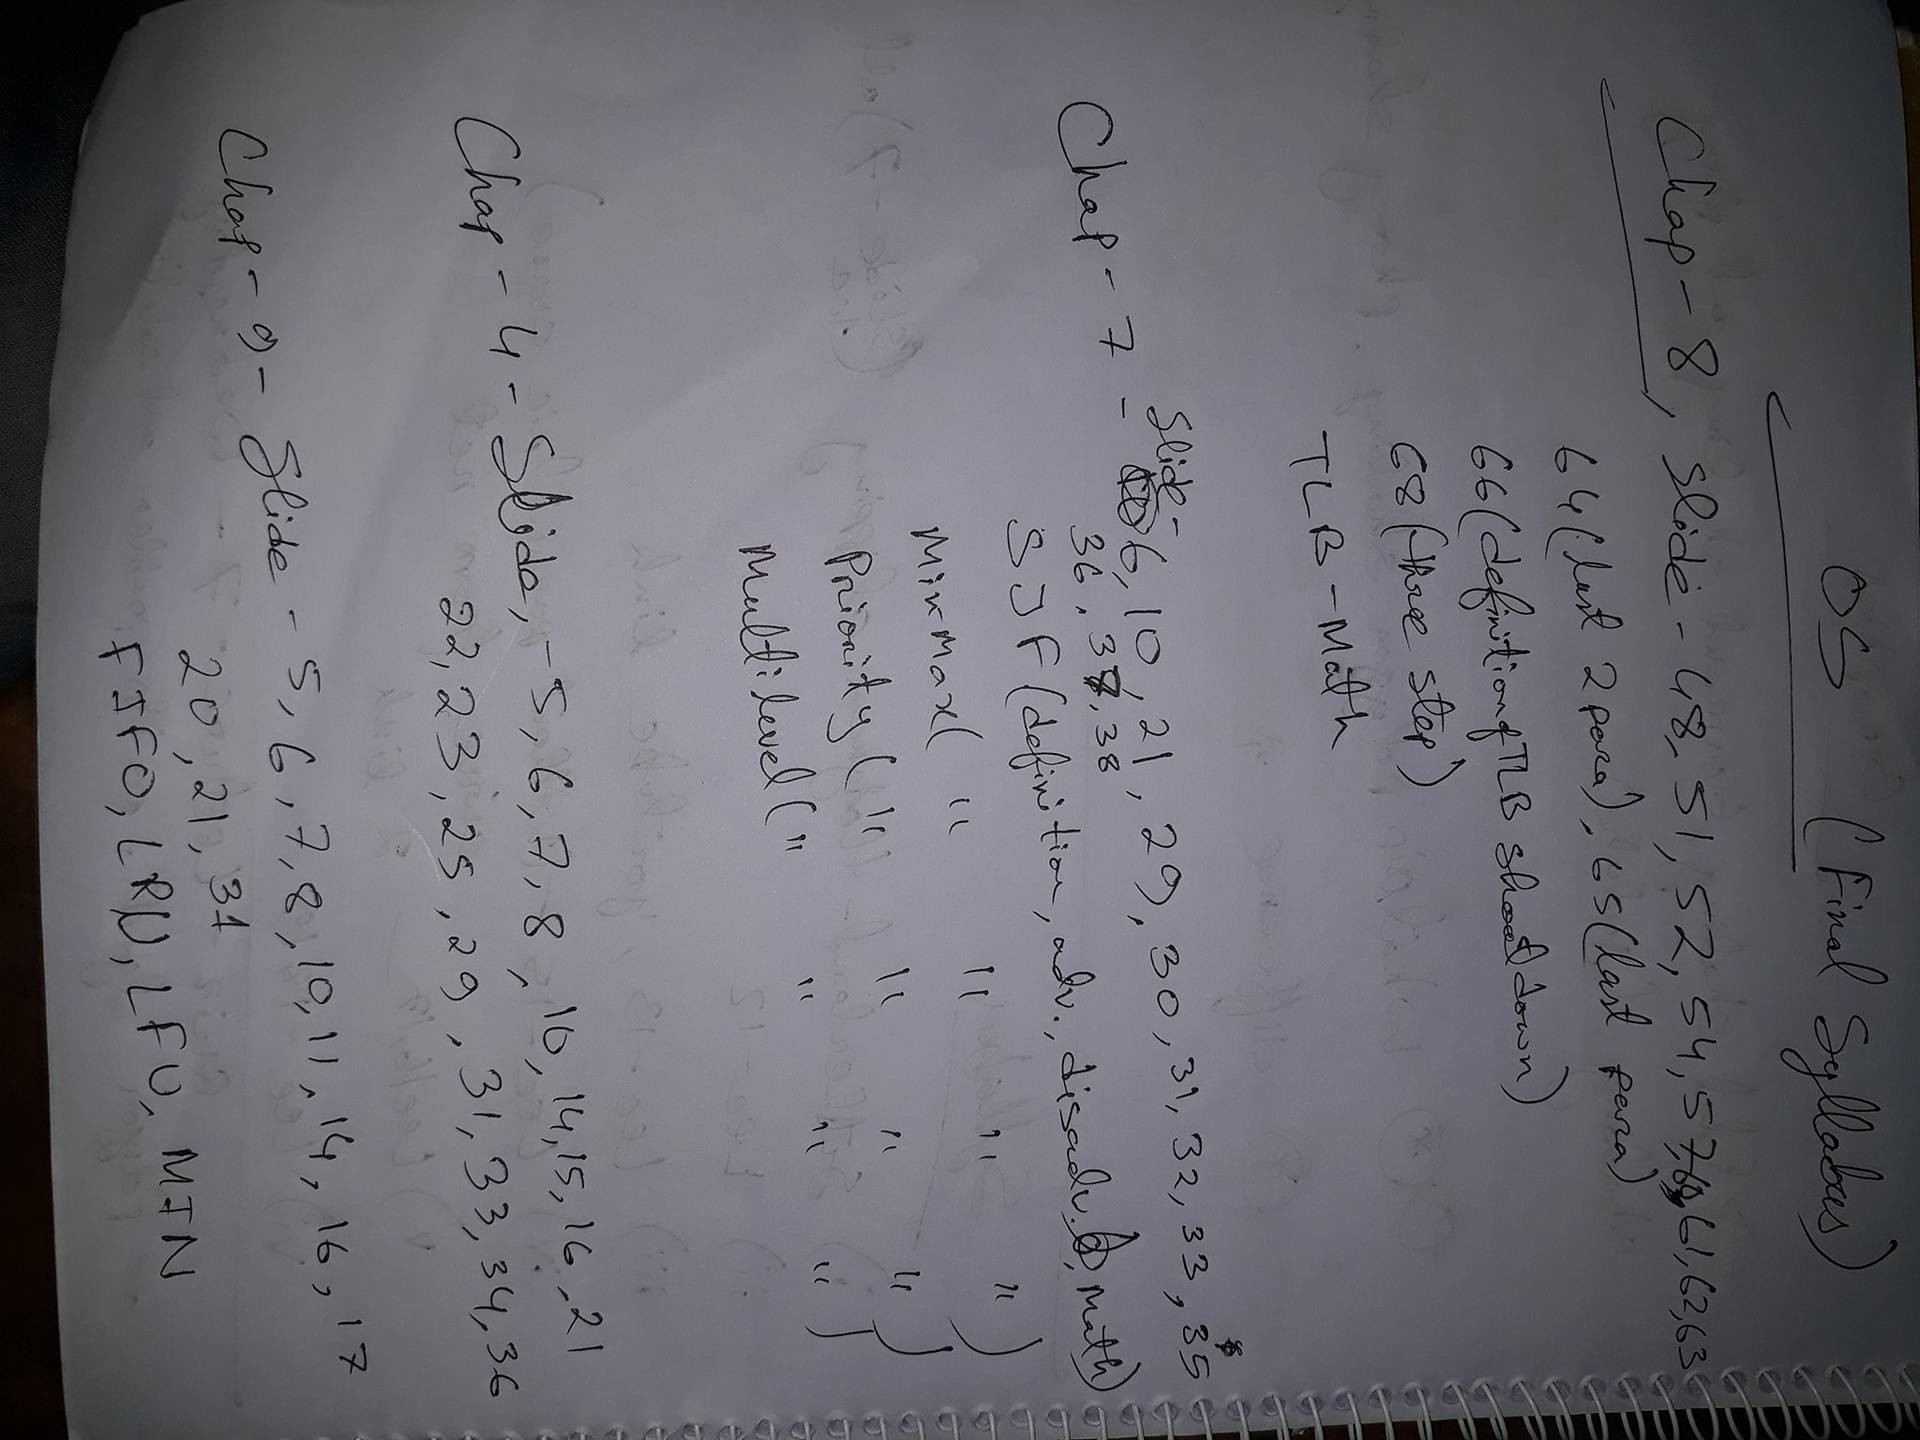 OS (Final Syllabus)
Chap-8, Slide-48, 51, 52, 54, 57, 61, 62, 63
64 (last 2 para), 65 (last para)
66 (definition of TLB shoot down)
68 (three step)
TLB-Math
Slide-
Chap-7 - 6, 10, 21, 29, 30, 31, 32, 33, 35
36, 37, 38
SJF (definition, adv., disadv., Math)
Min Max ( " " " " )
Priority ( " " " " )
Multilevel ( " " " " )
Chap-4-Slide,-5, 6, 7, 8, 10, 14, 15, 16, 21
22, 23, 25, 29, 31, 33, 34, 36
Chap-9-Slide-5, 6, 7, 8, 10, 11, 14, 16, 17
20, 21, 31
FIFO, LRU, LFU, MIN